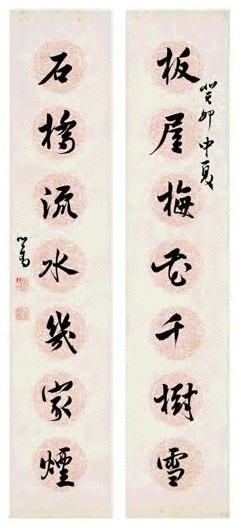 癸卯中夏
板屋梅花千樹雪
石橋流水幾家煙
心畬